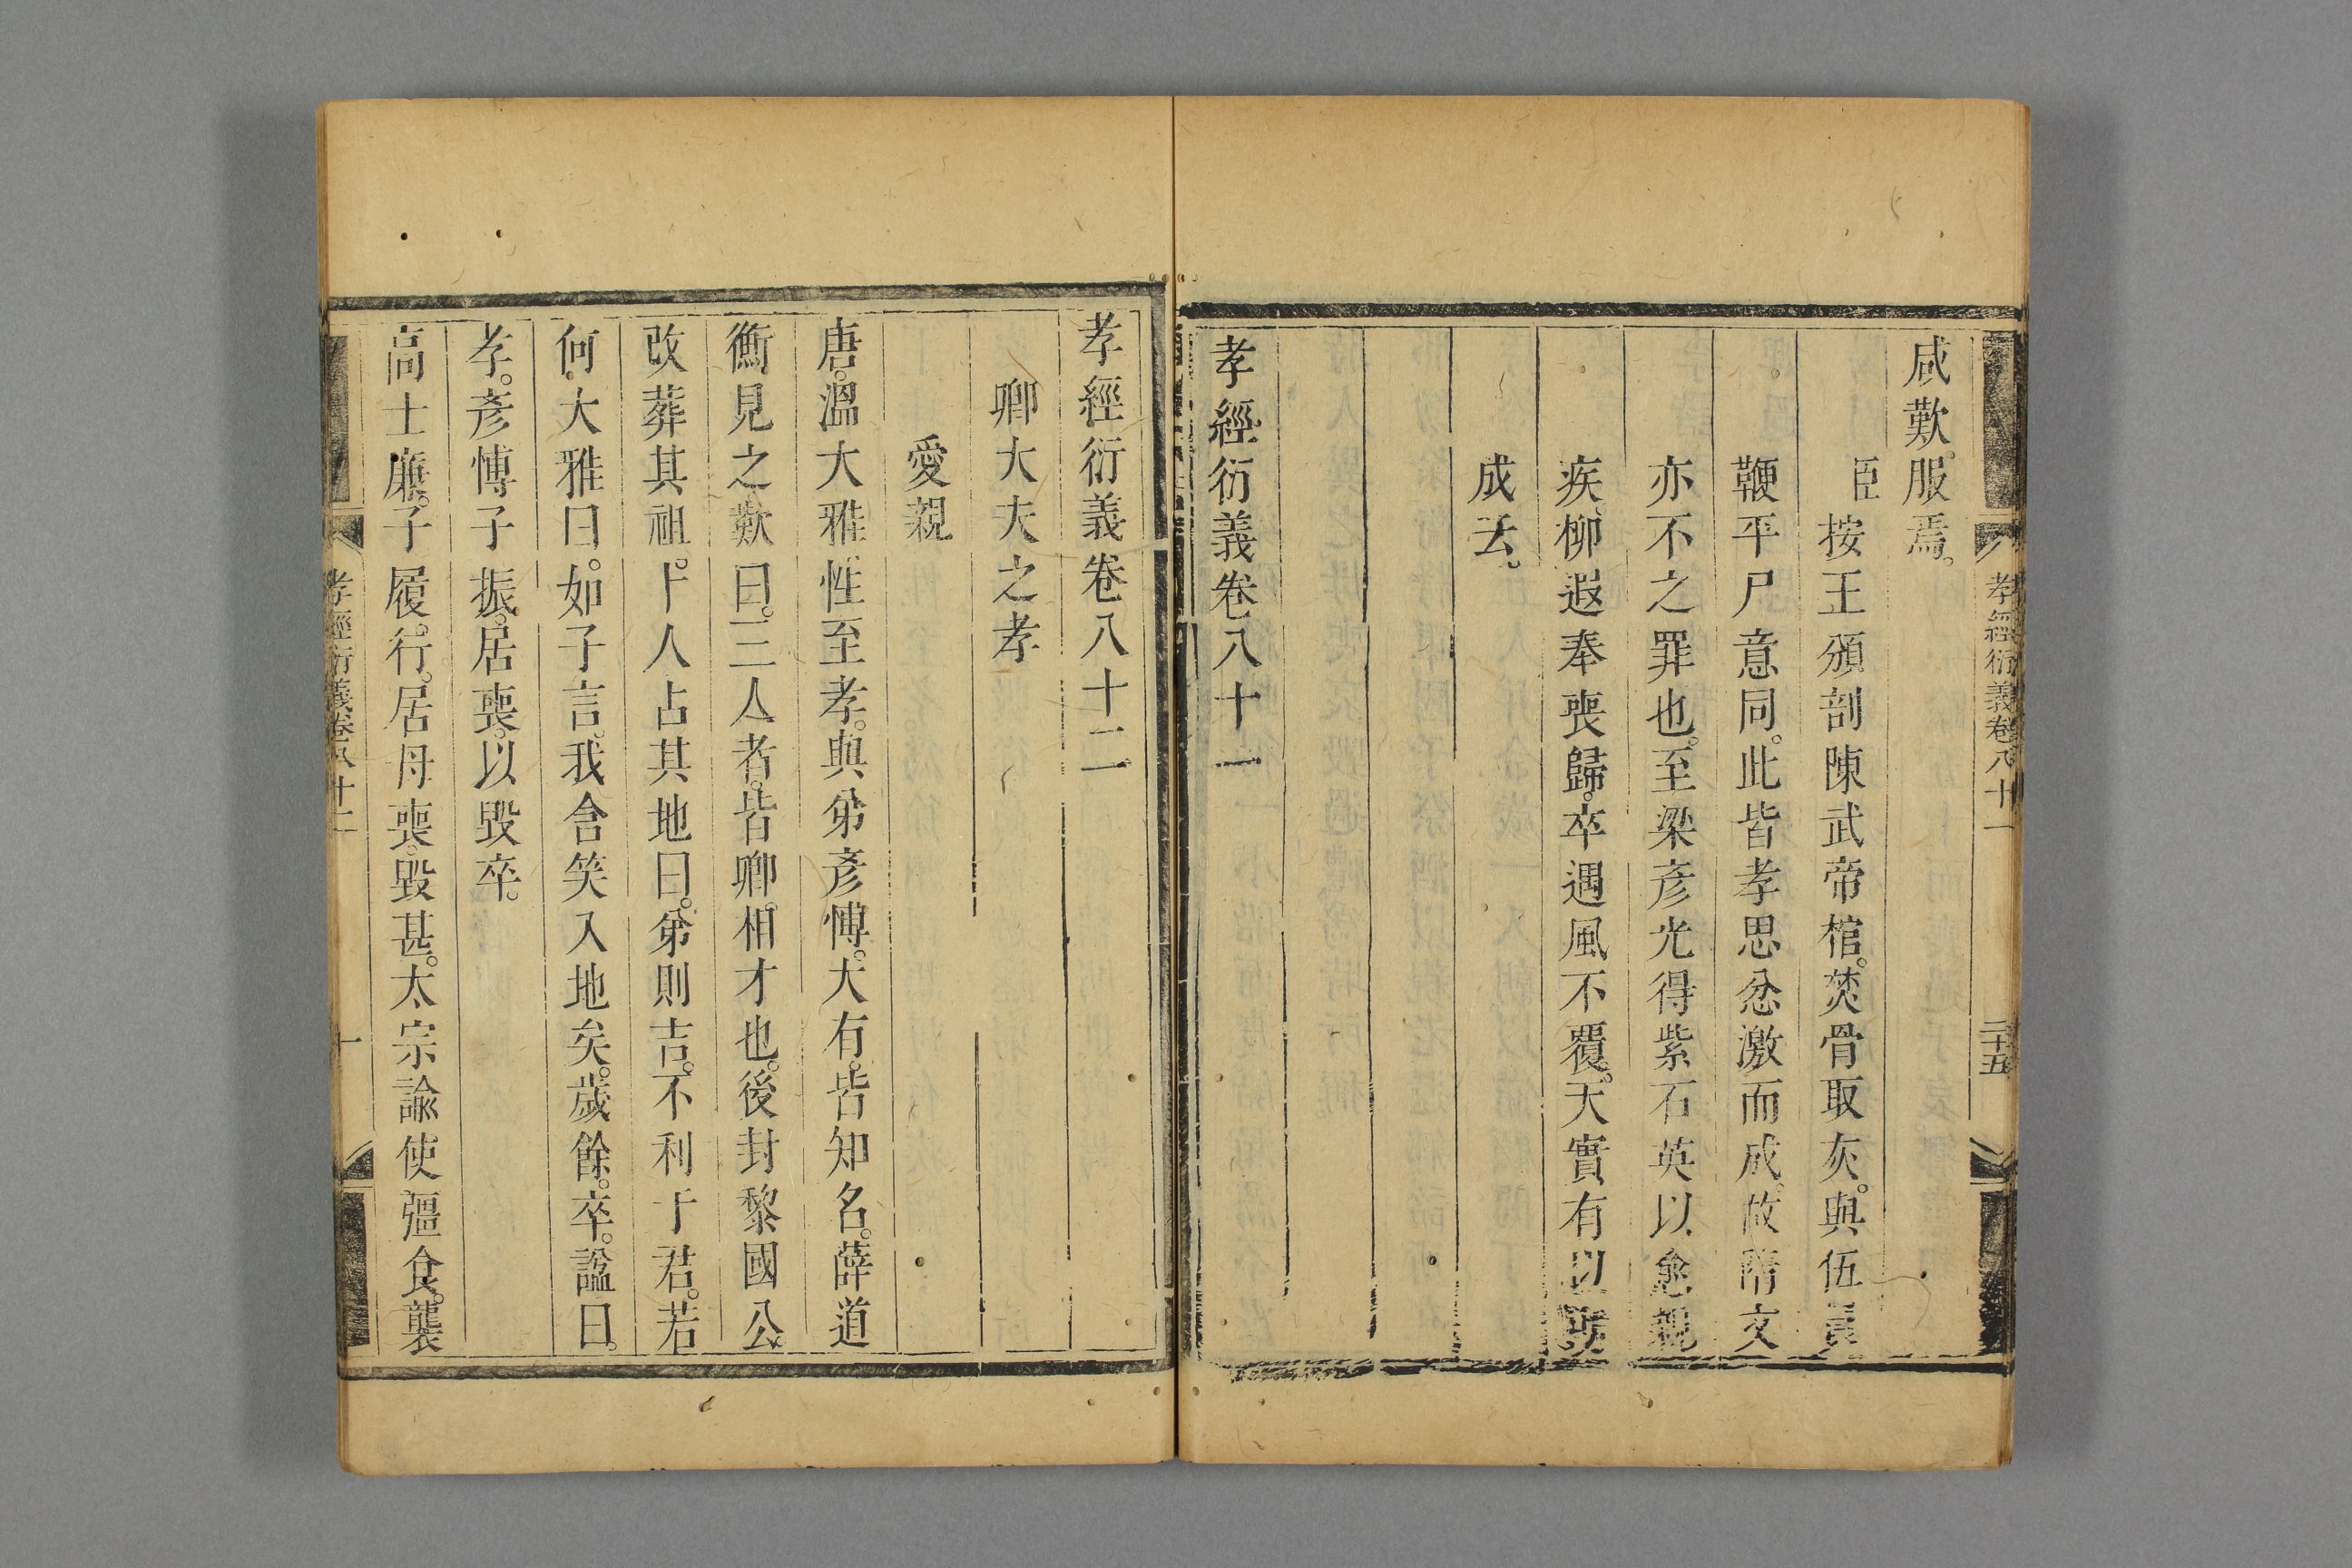 孝經衍義卷八十一
二十五
咸歎。服焉。
臣按王頒剖陳武帝棺。焚骨取灰。與伍員
鞭平尸意同。此皆孝思忿激而成。故隋文
亦不之罪也。至梁彥光得紫石英以愈親
疾。柳遐奉喪歸。卒遇風不覆。天實有以

成云。
孝經衍義卷八十一
孝經衍義卷八十二
卿大夫之孝
愛親
唐。溫大雅。性至孝。與弟彥博。大有。皆知名。薛道
衡見之歎曰。三人者。皆卿。相才也。後封黎國公。
改葬其祖。卜人占其地曰。弟則吉。不利于君。若
何。大雅曰。如子言。我含笑入地矣。歲餘。卒。諡曰。
孝。彥博子振。居喪。以毀卒。
高士廉。子履。行。居母喪。毀甚。太宗諭使彊食。襲
孝經衍義卷八十二
一